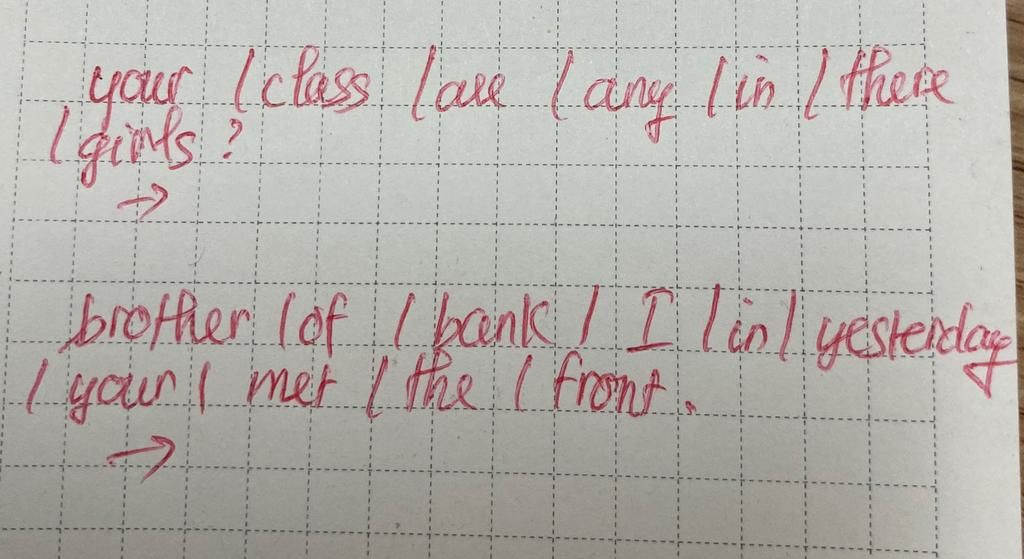 your / class / are / any / in / there
/ girls ?
→
brother / of / bank / I / in / yesterday
/ your / met / the / front.
→